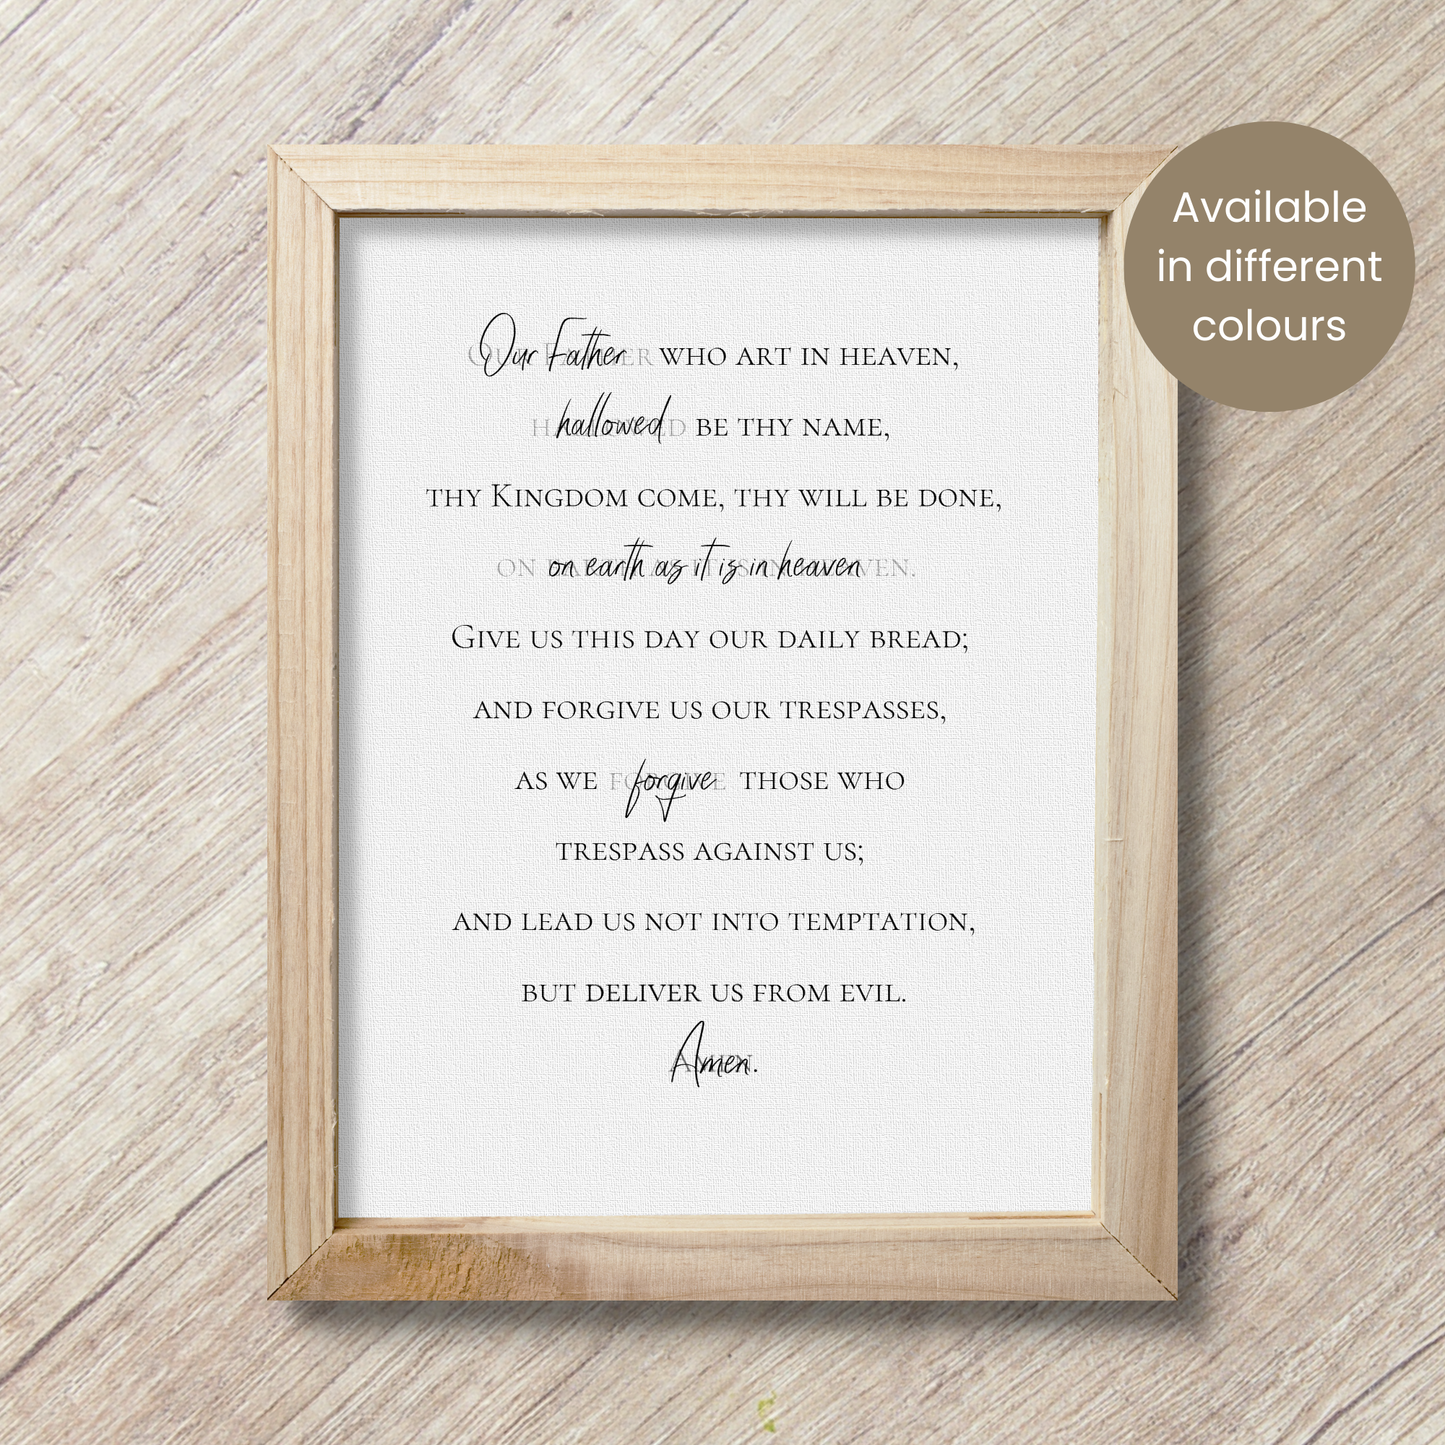 Our Father who art in heaven,
hallowed be thy name,
thy Kingdom come, thy will be done,
on earth as it is in heaven.
Give us this day our daily bread;
and forgive us our trespasses,
as we forgive those who
trespass against us;
and lead us not into temptation,
but deliver us from evil.
Amen.
Available
in different
colours